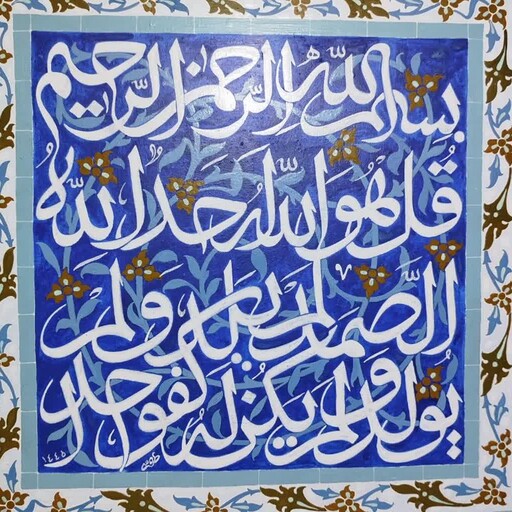 بسم الله الرحمن الرحيم
قل هو الله أحد الله
الصمد لم يلد ولم
يولد ولم يكن له كفوا أحد
١٤٤٥